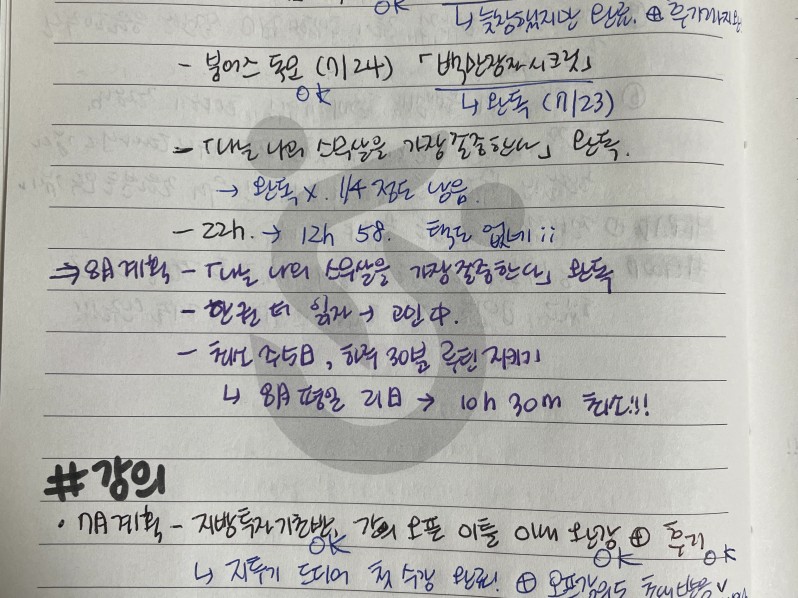 OK ↳ 늦장부렸지만 완료. ⊕ 후기까지 완
- 붕어스 독모 (7/24) 「백만장자 시크릿」
OK ↳ 완독 (7/23)
- 「나는 나의 스무살을 가장 존중한다」 완독.
→ 완독 x. 1/4 정도 남음.
- 22h. → 12h 58. 택도 없네;;
⇒ 8月 계획 - 「나는 나의 스무살을 가장 존중한다」 완독
- 한 권 더 읽자 → 고민 中.
- 최소 주 5日, 하루 30분 루틴 지키기
↳ 8月 평일 21日 → 10h 30m 최소!!!
#강의
· 7月 계획 - 지방투자기초반, 강의 오픈 이틀 이내 완강 ⊕ 후기
OK OK OK
↳ 지투기 드디어 첫 수강 완료! ⊕ 오프강의도